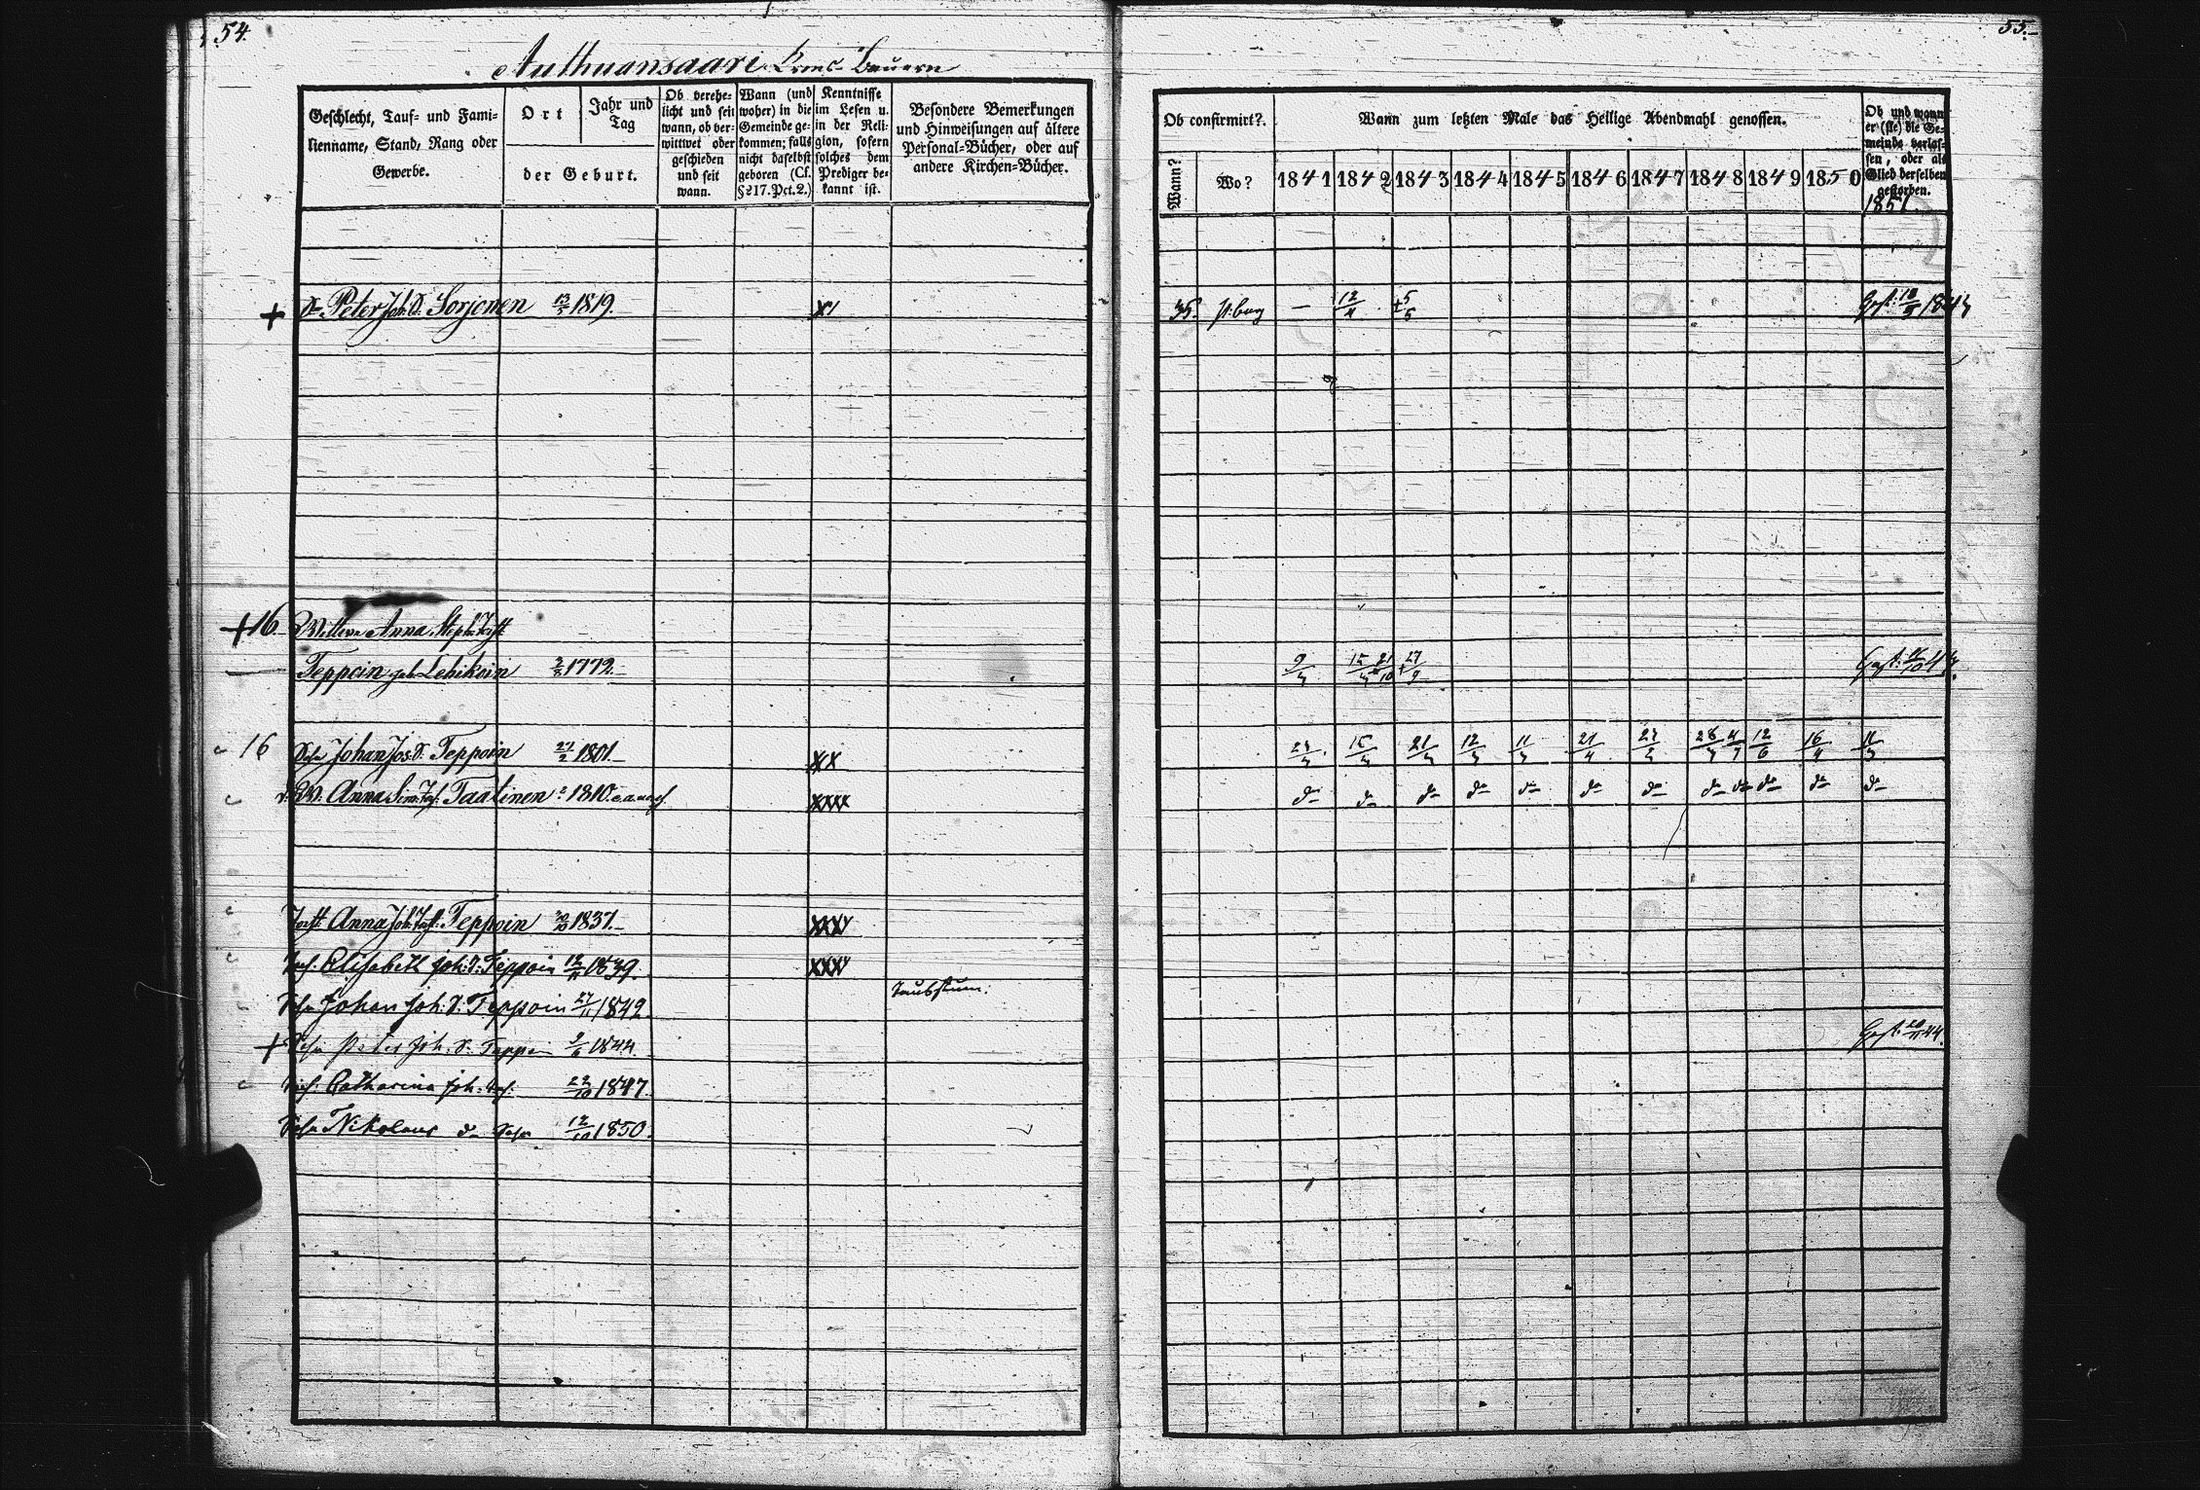 54.
Authuansaari Krons Bauern
Geschlecht, Tauf- und Fami-
lienname, Stand, Rang oder
Gewerbe.
Ort
Jahr und
Tag
der Geburt.
Ob verehe-
licht und seit
wann, ob ver-
wittwet oder
geschieden
und seit
wann.
Wann (und
woher) in die
Gemeinde ge-
kommen; falls
nicht daselbst
geboren (Cf.
§ 217. Pct. 2.)
Kenntnisse
im Lesen u.
in der Reli-
gion, sofern
solches dem
Prediger be-
kannt ist.
Besondere Bemerkungen
und Hinweisungen auf ältere
Personal-Bücher, oder auf
andere Kirchen-Bücher.
+ Peter Joh. S. Sorjonen 1819.
+ 16. Wittwe Anna Steph. Tocht.
Teppoin geb. Lehikoin 1772.
16 Sohn Johan Jos. S. Teppoin 27/2 1801. XX
W. Anna Sim. Tocht. Taatinen 1810. XXXX
Tocht. Anna Joh. Tocht. Teppoin 1837. XXX
Elisabeth Joh. Teppoin 12/11 1839. XXX
Sohn Johan Joh. S. Teppoin 27/11 1842. Taubstum.
+ Sohn Peter Joh. S. Teppoin 1844.
Catharina Joh. 22/10 1847.
Sohn Nikolaus do Sohn 12/10 1850.
55.
Ob confirmirt?
Wann?
Wo?
Wann zum letzten Male das Heilige Abendmahl genossen.
1841 1842 1843 1844 1845 1846 1847 1848 1849 1850
Ob und wann
er (sie) die Ge-
meinde verlas-
sen, oder als
Glied derselben
gestorben.
1851.
35. — 12/4 + 5/5 Gest. 1843
9/4 + 27/9 Gest.
12/3 11/3 21/4 12/6 16/4 11/3
do do do do do do do do do do do do
Gest. 44.